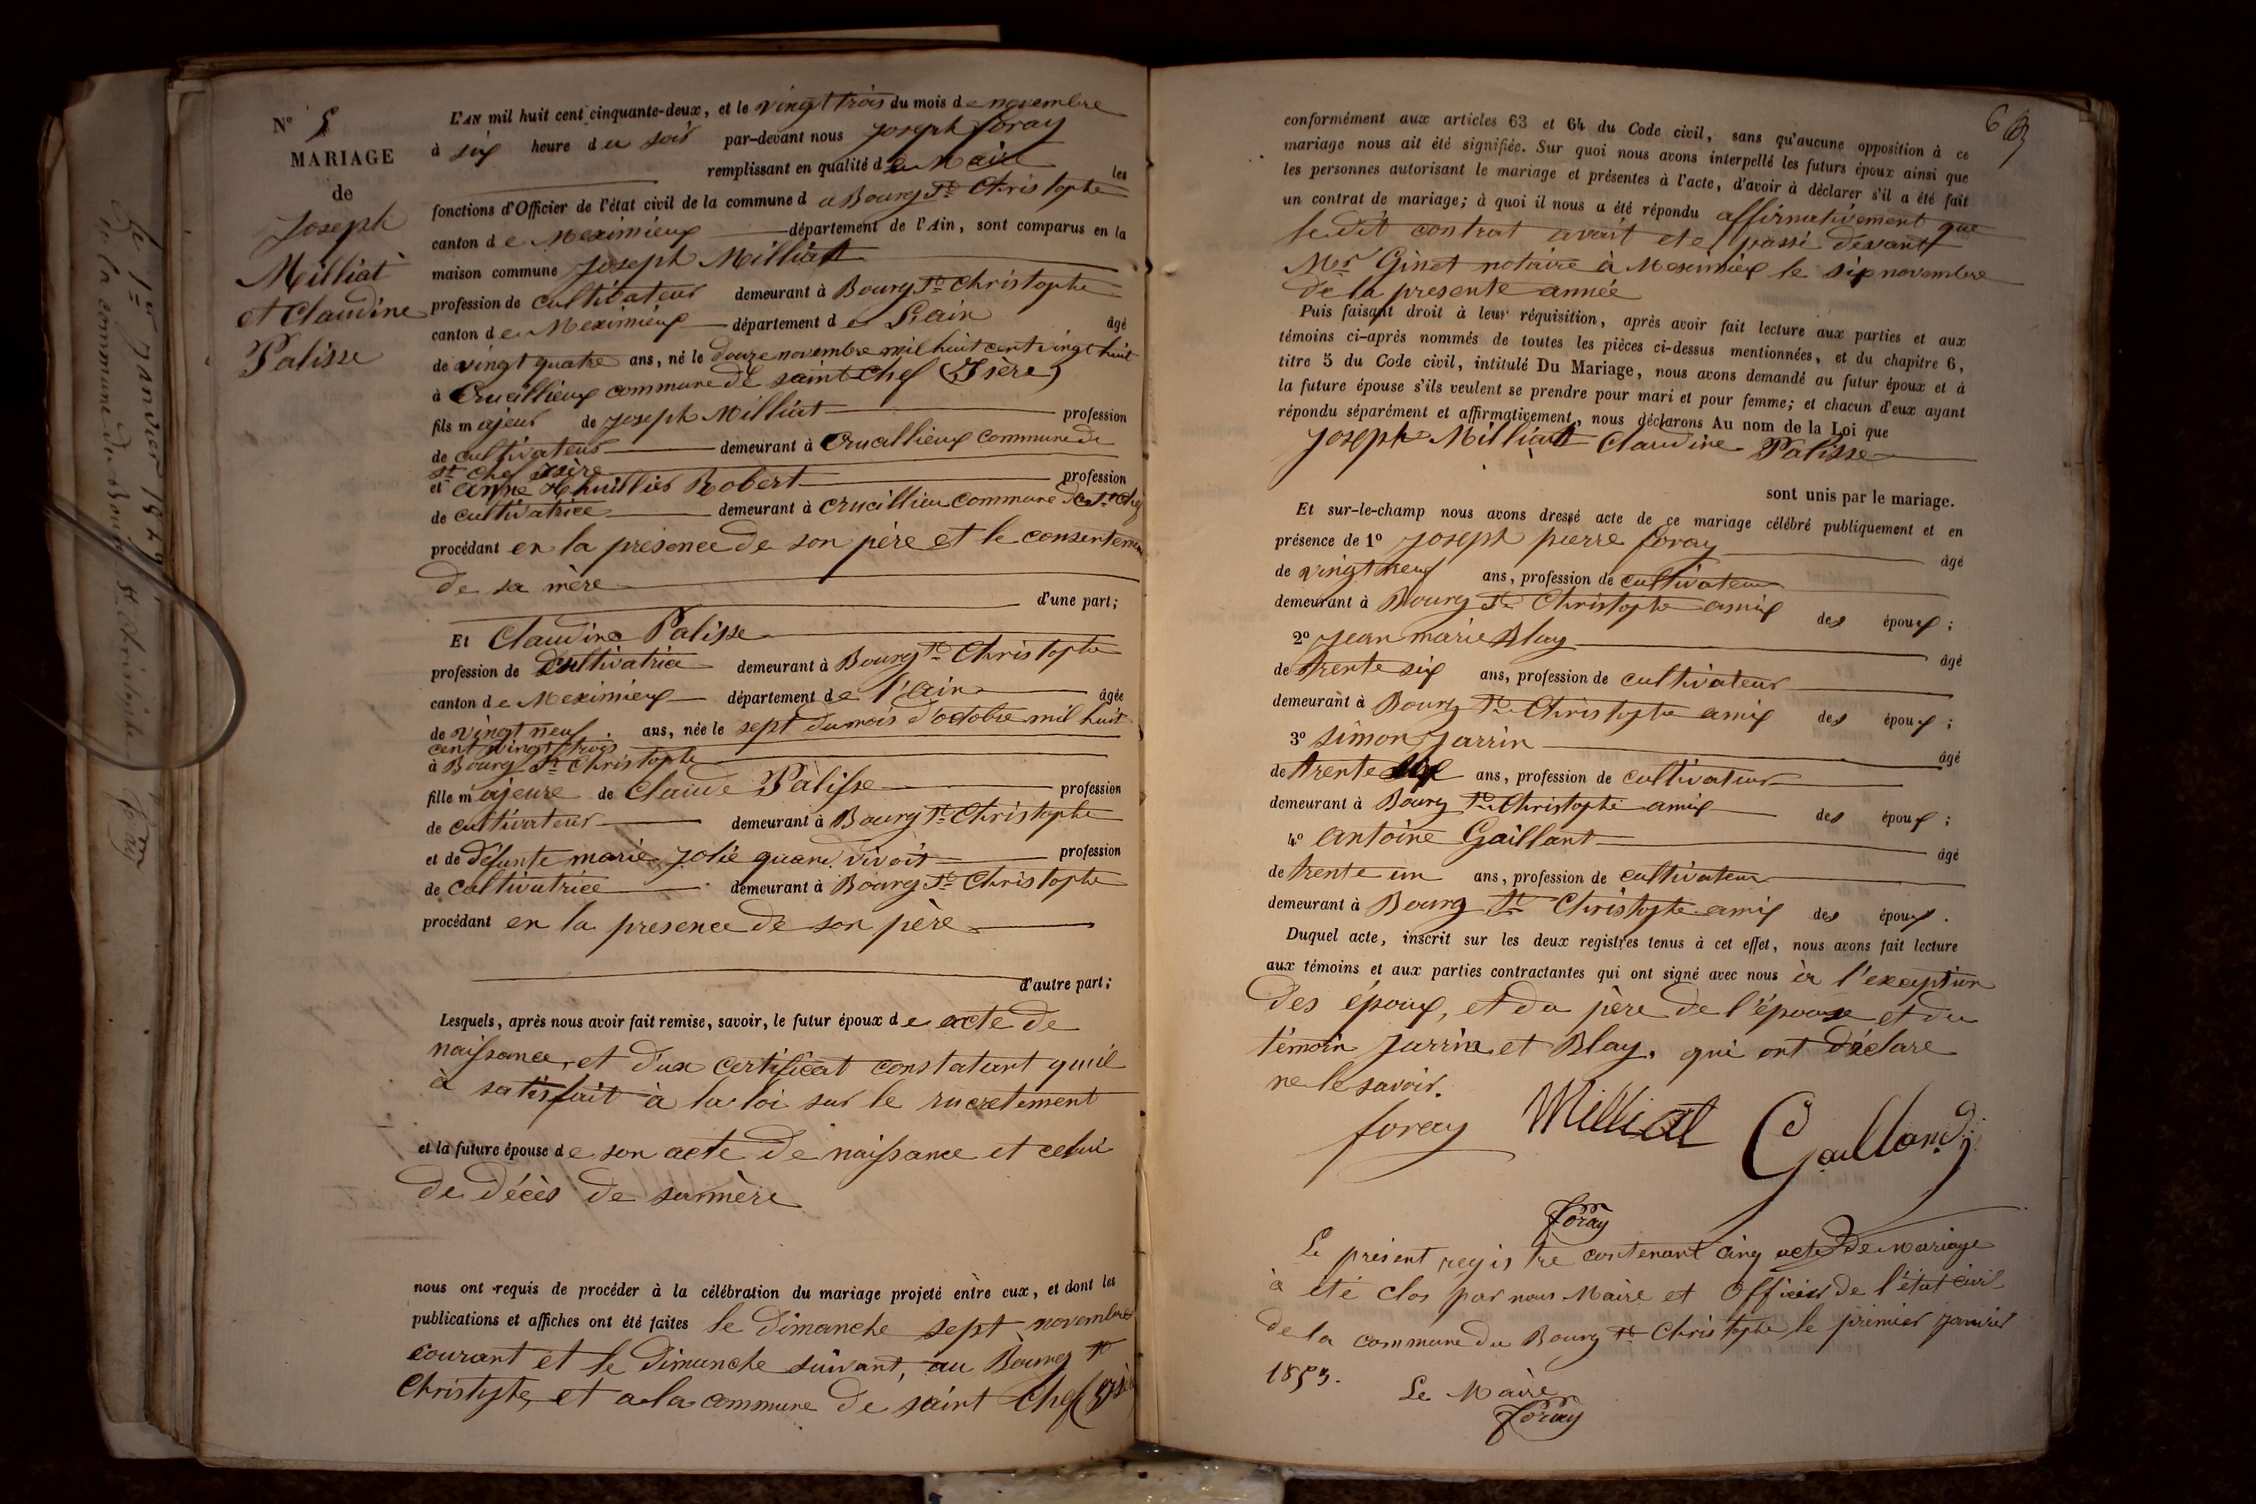 N° 5
MARIAGE
de
Joseph
Milliat
et Claudine
Palisse
L'AN mil huit cent cinquante-deux, et le vingt trois du mois de novembre
à six heure du soir par-devant nous Joseph foray
remplissant en qualité de Maire les
fonctions d'Officier de l'état civil de la commune d u Bourg St Christophe
canton de Meximieux département de l'Ain, sont comparus en la
maison commune Joseph Milliat
profession de cultivateur demeurant à Bourg St Christophe
canton de Meximieux département de L'ain âgé
de vingt quatre ans, né le douze novembre mil huit cent vingt huit
à Crucillieux commune de saint chef (Isère)
fils majeur de Joseph Milliat profession
de cultivateur demeurant à Crucillieux commune de
St chef isère
et anne Thuillier Robert profession
de cultivatrice demeurant à crucillieu commune de St chef
procédant en la presence de son père et le consenteme
de sa mère
d'une part;
Et Claudine Palisse
profession de Cultivatrice demeurant à Bourg St Christophe
canton de Meximieux département de l'ain âgée
de vingt neuf ans, née le sept du mois d'octobre mil huit
cent vingt trois
à Bourg St Christophe
fille majeure de Claude Palisse profession
de cultivateur demeurant à Bourg St Christophe
et de défunte marie Jolie quand vivoit profession
de cultivatrice demeurant à Bourg St Christophe
procédant en la presence de son père
d'autre part;
Lesquels, après nous avoir fait remise, savoir, le futur époux de acte de
naissance, et d'un certificat constatant qu'il
à satisfait à la loi sur le rucretement
et la future épouse de son acte de naissance et celui
de décès de sa mère
nous ont requis de procéder à la célébration du mariage projeté entre eux, et dont les
publications et affiches ont été faites le dimanche sept novembre
courant et le dimanche suivant, au Bourg St
Christophe, et a la commune de saint Chef (Isère
6
conformément aux articles 63 et 64 du Code civil, sans qu'aucune opposition à ce
mariage nous ait été signifiée. Sur quoi nous avons interpellé les futurs époux ainsi que
les personnes autorisant le mariage et présentes à l'acte, d'avoir à déclarer s'il a été fait
un contrat de mariage; à quoi il nous a été répondu affirmativement que
ledit contrat avait eté passé devant
Mer Ginet notaire à Meximieux le six novembre
de la presente année
Puis faisant droit à leur réquisition, après avoir fait lecture aux parties et aux
témoins ci-après nommés de toutes les pièces ci-dessus mentionnées, et du chapitre 6,
titre 5 du Code civil, intitulé Du Mariage, nous avons demandé au futur époux et à
la future épouse s'ils veulent se prendre pour mari et pour femme; et chacun d'eux ayant
répondu séparément et affirmativement, nous déclarons Au nom de la Loi que
Joseph Milliat Claudine Palisse
sont unis par le mariage.
Et sur-le-champ nous avons dressé acte de ce mariage célébré publiquement et en
présence de 1° Joseph pierre foray âgé
de vingt neuf ans, profession de cultivateur
demeurant à Bourg St Christophe amix des époux;
2° Jean marie Blay âgé
de trente six ans, profession de cultivateur
demeurant à Bourg St Christophe amix des époux;
3° Simon Jarrin âgé
de trente six ans, profession de cultivateur
demeurant à Bourg St Christophe amix des époux;
4° antoine Gaillant âgé
de trente un ans, profession de cultivateur
demeurant à Bourg St Christophe amix des époux.
Duquel acte, inscrit sur les deux registres tenus à cet effet, nous avons fait lecture
aux témoins et aux parties contractantes qui ont signé avec nous à l'exception
des époux, et du père de l'épouse et du
témoin Jarrin et Blay. qui ont déclare
ne le savoir.
foray Milliat Gailland
Foray
Le présent registre contenant cinq actes de mariage
à été clos par nous Maire et Officier de l'état civil
de la commune du Bourg St Christophe le premier janvier
1853.
Le Maire
Foray